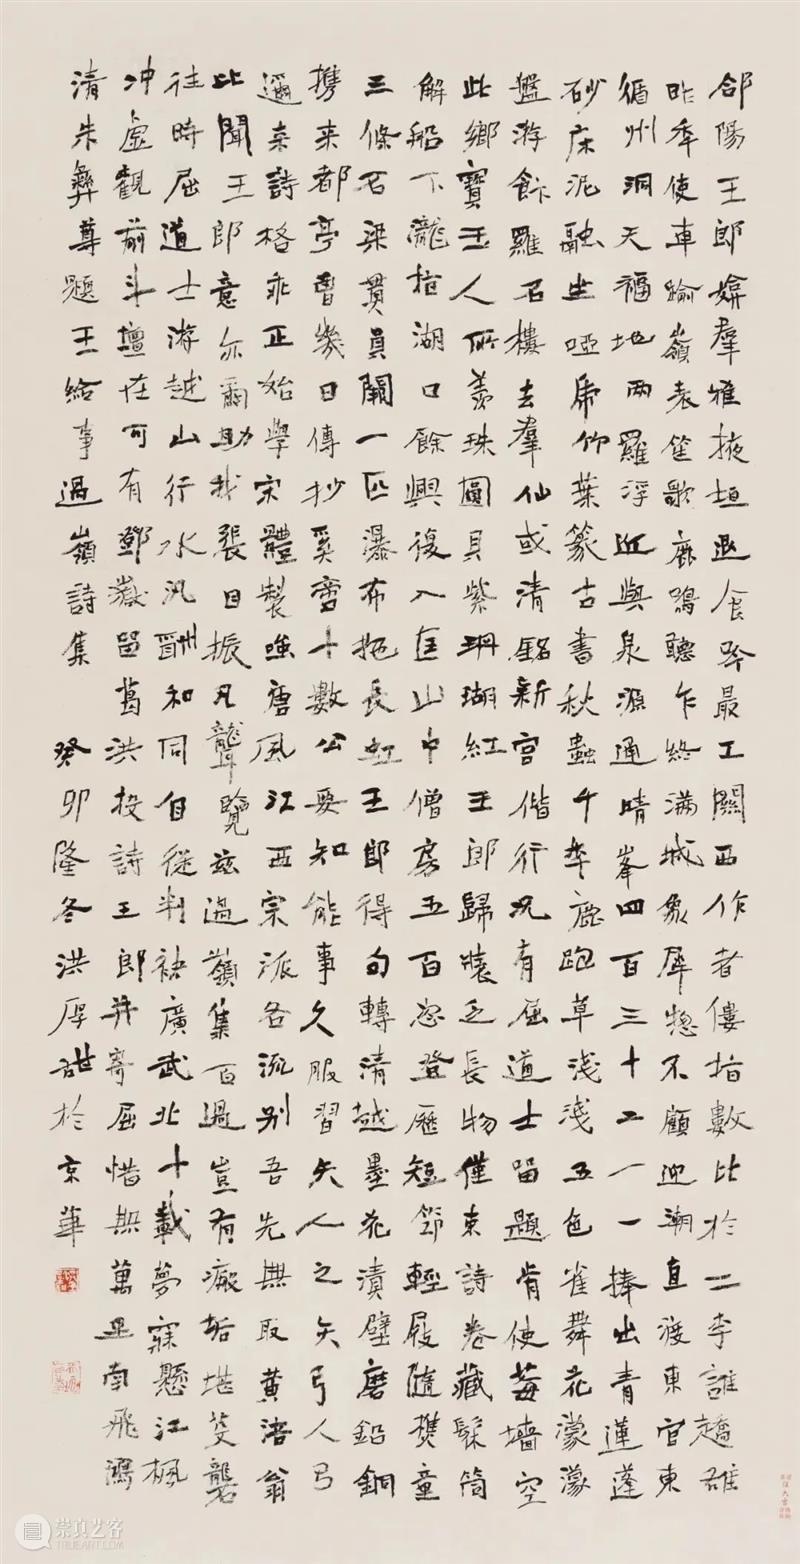 郃陽王郎媕羣雅掖垣退食吟最工關西作者僂指數比於二李誰趫雄
昨年使車踰嶺表笙歌鹿鳴聽乍終滿城象犀揔不顧迎潮直渡東官東
循州洞天福地兩羅浮近與泉源通晴峯四百三十二一一捧出青蓮蓬
砂床泥融坐啞虎竹葉篆古書秋蟲千年鹿跑草淺淺五色雀舞花濛濛
盤游飰羅石樓去羣仙或清銘新宮偕行況有屈道士留題肯使莓墻空
此鄉寶玉人所羨珠圓貝紫珊瑚紅王郎歸裝乏長物僅束詩卷藏髹筒
解船下瀧指湖口餘興復入匡山中僧房五百恣登歷短節輕屐隨樵童
三條石梁貫員闕一匹瀑布拖長虹王郎得句轉清越墨花漬壁磨鉛銅
攜来都亭曾幾日傳抄奚啻十數公要知能事久服習矢人之矢弓人弓
邇来詩格乖正始學宋體製嗤唐風江西宗派各流别吾先無取黄涪翁
比聞王郎意亦爾助我張目振凡聾覽茲過嶺集百過豈有瘢垢堪芟礱
往時屈道士游越山行水汎酬和同自從判袂廣武北十載夢寐懸江楓
冲虛觀前斗壇在可有鄧嶽留葛洪投詩王郎并寄屈惜無萬里南飛鴻
清朱彝尊題王給事過嶺詩集 癸卯隆冬洪厚甜於京華
崇真艺客